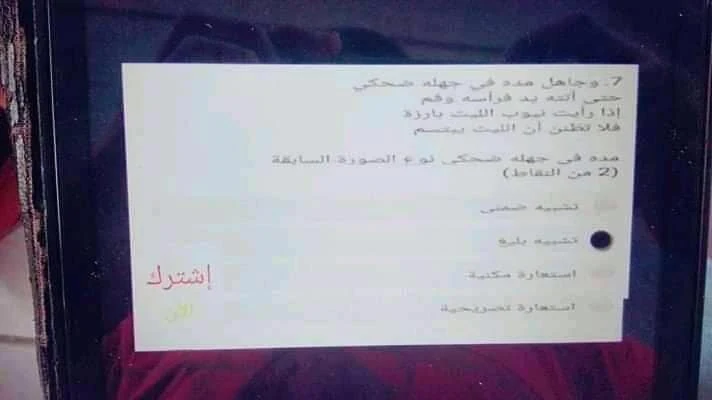 7. وجاهل مده في جهله ضحكي
حتى أتته يد فراسه وفم
إذا رأيت نيوب الليث بارزة
فلا تظنن أن الليث يبتسم
مده في جهله ضحكي نوع الصورة السابقة
(2 من النقاط)
تشبيه ضمني
تشبيه بليغ
استعارة مكنية
استعارة تصريحية
إشترك
الآن